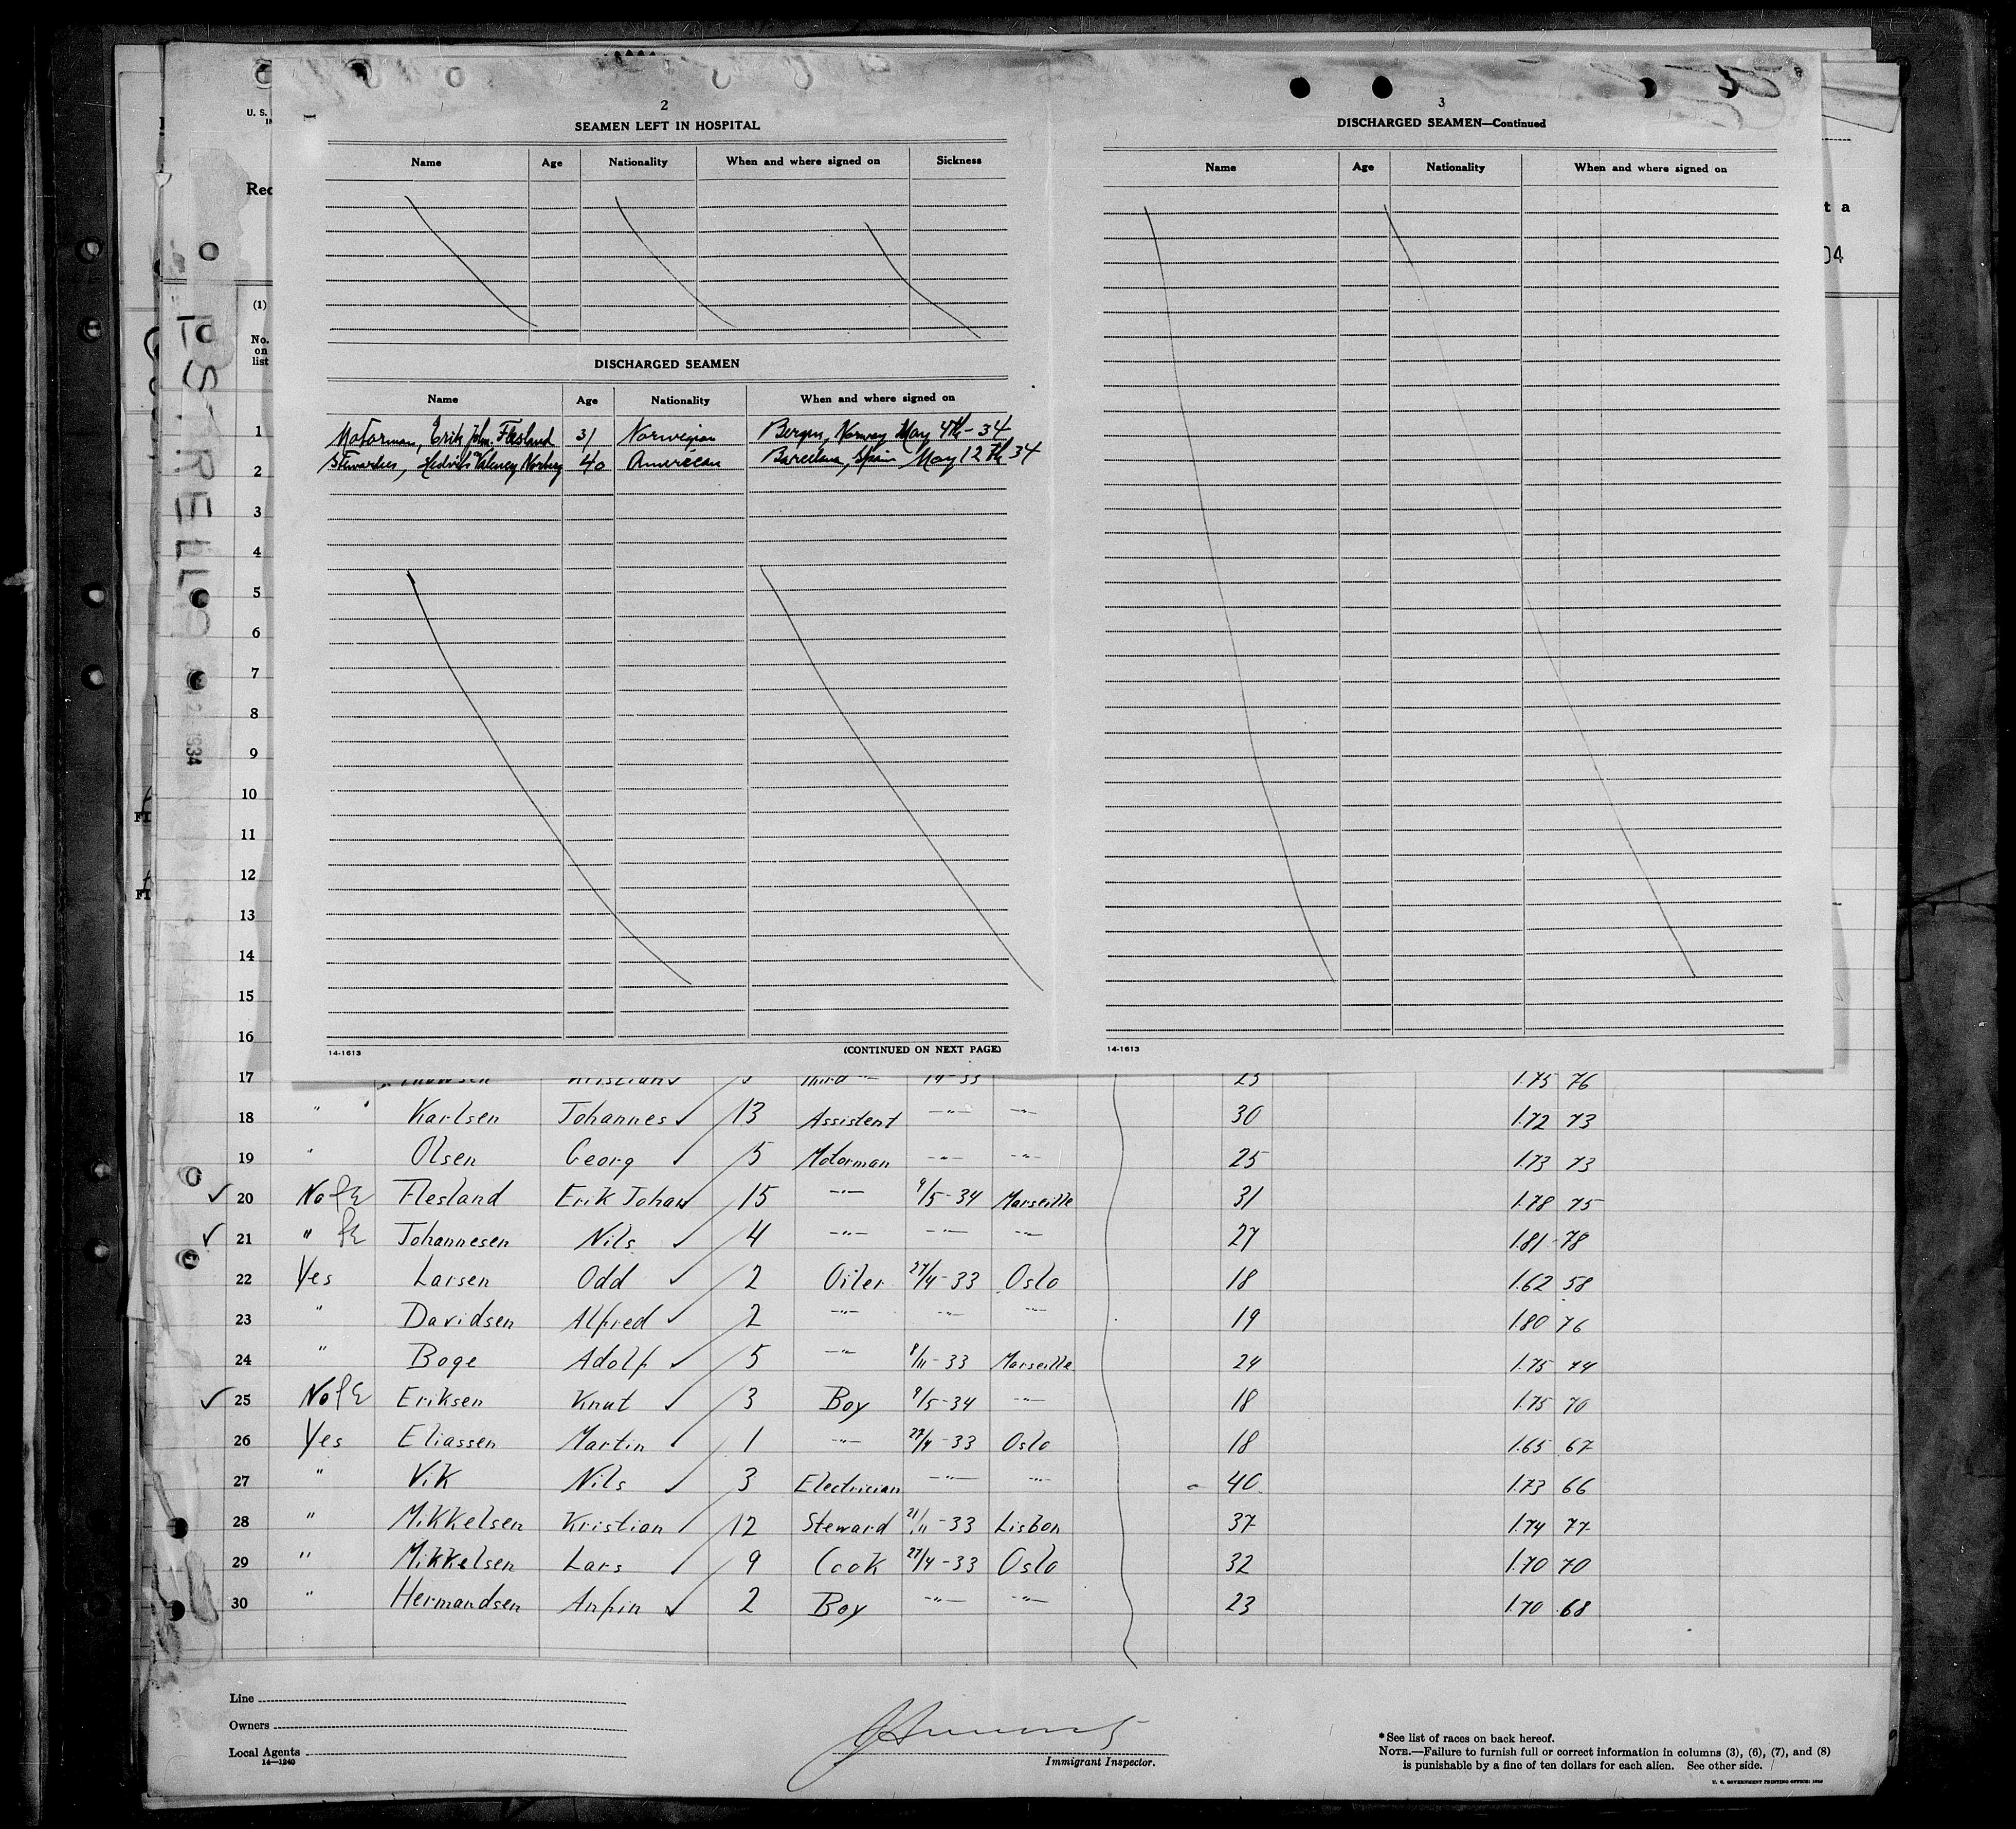 2
SEAMEN LEFT IN HOSPITAL
Name Age Nationality When and where signed on Sickness
DISCHARGED SEAMEN
Name Age Nationality When and where signed on
Motorman, Erik Joh. Flesland 31 Norwegian Bergen, Norway May 4th-34
Stewardess, Norberg 40 American Barcelona, Spain May 12th 34
14-1613 (CONTINUED ON NEXT PAGE)
3
DISCHARGED SEAMEN—Continued
Name Age Nationality When and where signed on
14-1613
U. S.
Rec
t a
04
ESTRELLA
1934
(1)
No.
on
list
1
2
3
4
5
6
7
8
9
10
11
12
13
14
15
16
17 Third 14-33 25 1.75 76
18 " Karlsen Johannes 13 Assistent —"— —"— 30 1.72 73
19 " Olsen Georg 5 Motorman —"— —"— 25 1.73 73
20 No Flesland Erik Johan 15 —"— 9/5-34 Marseille 31 1.78 75
21 " Johannesen Nils 4 —"— —"— —"— 27 1.81 78
22 Yes Larsen Odd 2 Oiler 27/4-33 Oslo 18 1.62 58
23 " Davidsen Alfred 2 —"— —"— —"— 19 1.80 76
24 " Boge Adolf 5 —"— 8/11-33 Marseille 24 1.75 74
25 No Eriksen Knut 3 Boy 9/5-34 —"— 18 1.75 70
26 Yes Eliassen Martin 1 —"— 27/4-33 Oslo 18 1.65 67
27 " Vik Nils 3 Electrician —"— —"— 40 1.73 66
28 " Mikkelsen Kristian 12 Steward 21/11-33 Lisbon 37 1.74 77
29 " Mikkelsen Lars 9 Cook 27/4-33 Oslo 32 1.70 70
30 " Hermandsen Anfin 2 Boy —"— —"— 23 1.70 68
Line
Owners
Local Agents
14—1240
Immigrant Inspector.
* See list of races on back hereof.
NOTE.—Failure to furnish full or correct information in columns (3), (6), (7), and (8)
is punishable by a fine of ten dollars for each alien. See other side.